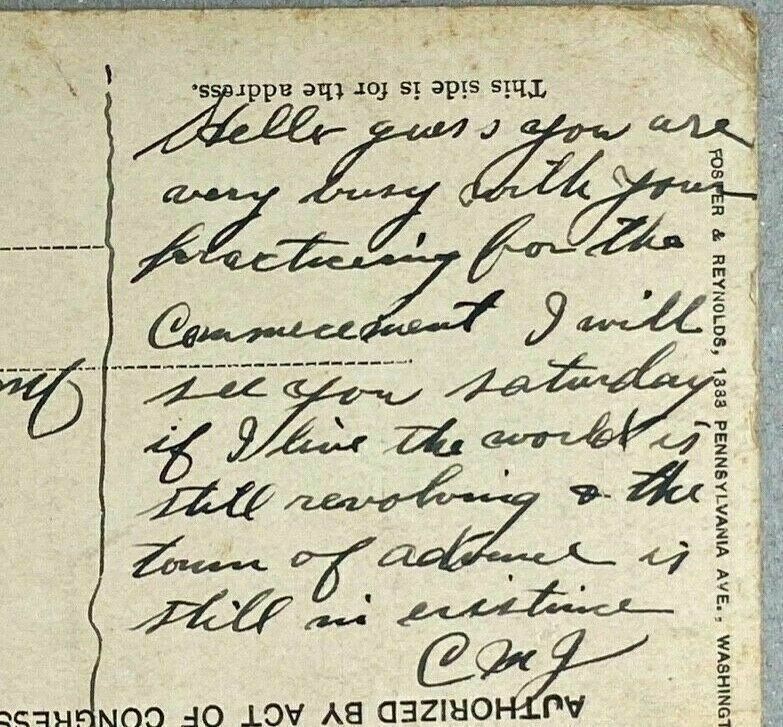 This side is for the address.
Hello guess you are
very busy with your
practiceing for the
Commecement I will
see you saturday
if I live the world is
still revolving & the
town of advance is
still in existince
C M J
FOSTER & REYNOLDS, 1333 PENNSYLVANIA AVE., WASHINGT
AUTHORIZED BY ACT OF CONGRESS